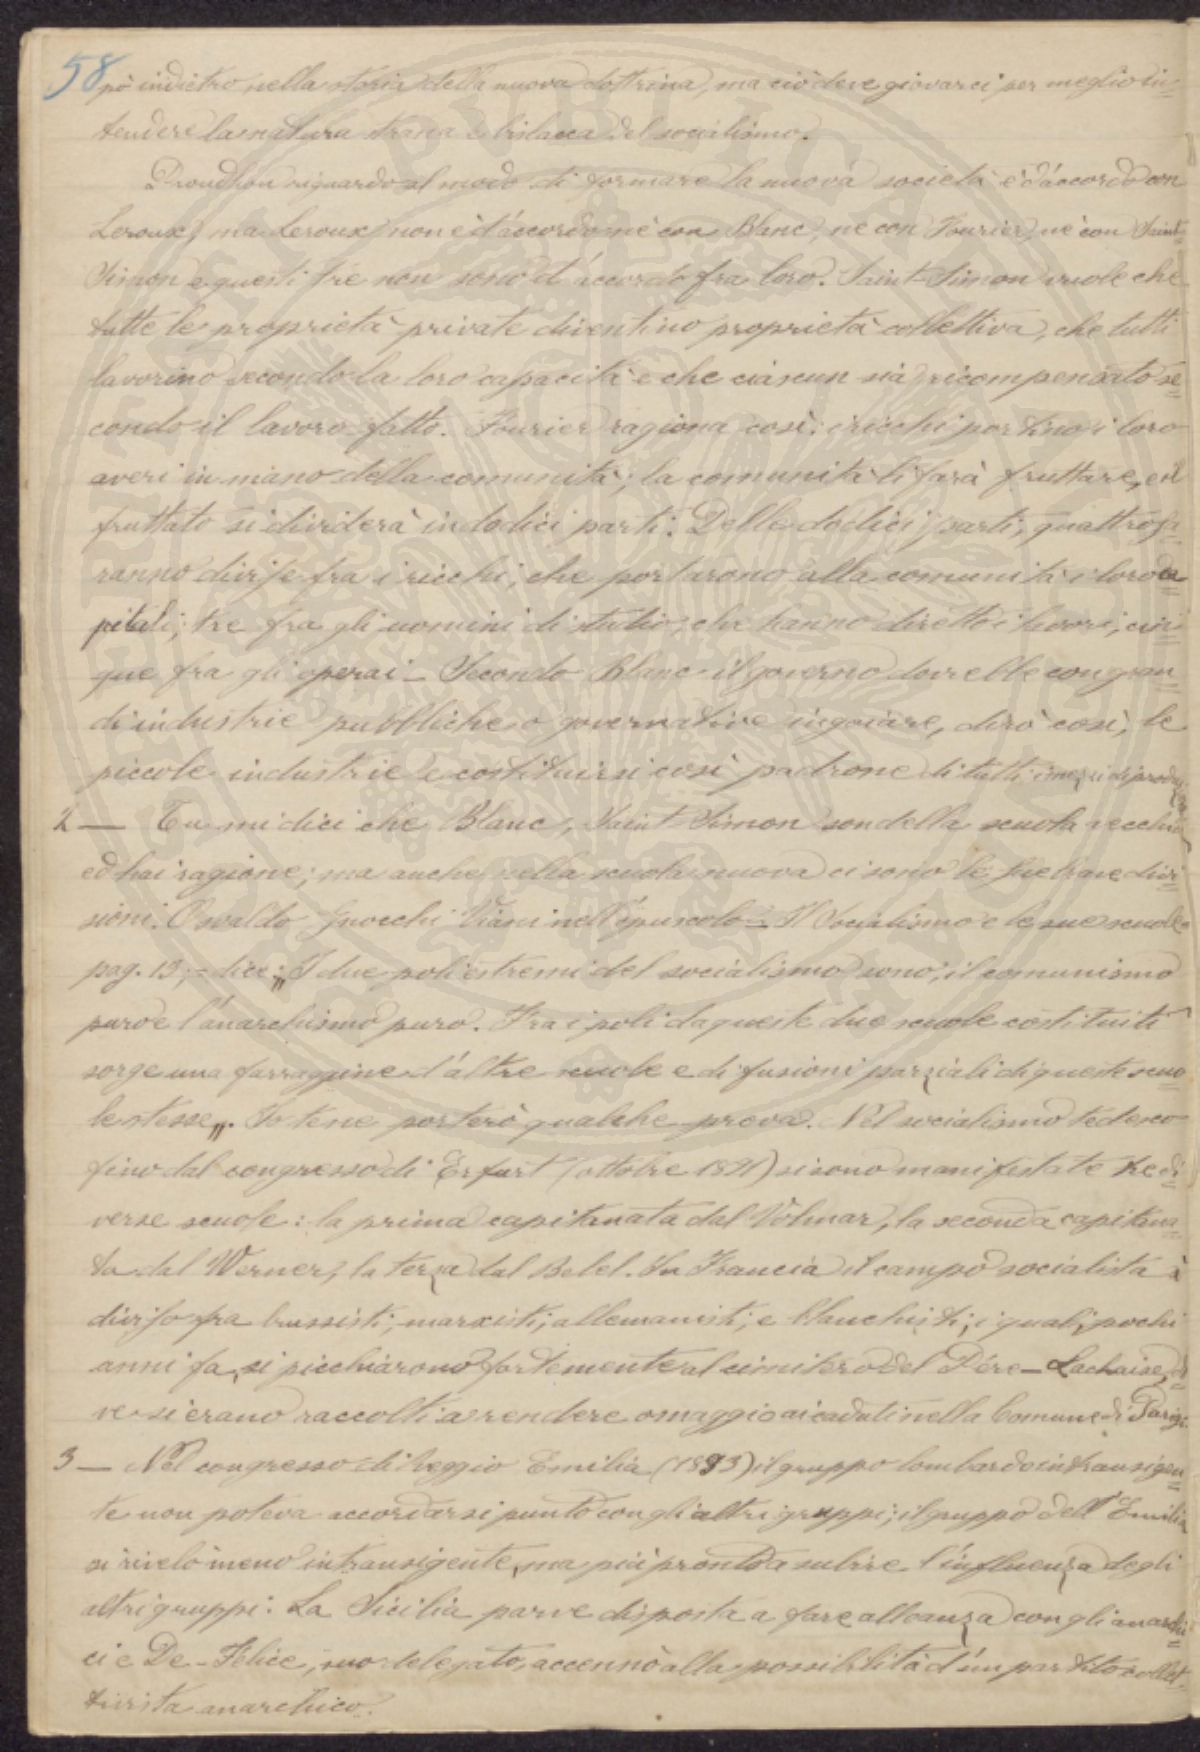 58
pò indietro nella storia della nuova dottrina, ma ciò deve giovarci per meglio in=
tendere la natura strana e bislacca del socialismo.
Proudhon riguardo al modo di formare la nuova società è d'accordo con
Leroux, ma Leroux non è d'accordo nè con Blanc, nè con Fourier, nè con Saint=
Simon e questi tre non sono d'accordo fra loro. Saint-Simon vuole che
tutte le proprietà private diventino proprietà collettiva, che tutti
lavorino secondo la loro capacità e che ciascun sia ricompensato se=
condo il lavoro fatto. Fourier ragiona così: i ricchi portino i loro
averi in mano della comunità; la comunità li farà fruttare, e il
fruttato si dividerà in dodici parti. Delle dodici parti, quattro sa=
ranno divise fra i ricchi, che portarono alla comunità i loro ca=
pitali; tre fra gli uomini di studio, che hanno diretto i lavori, cin=
que fra gli operai — Secondo Blanc il governo dovrebbe con gran=
di industrie pubbliche o governative ingoiare, dirò così, le
piccole industrie e costituirsi così padrone di tutti i mezzi di produzione
2 — Tu mi dici che Blanc, Saint-Simon son della scuola vecchia
ed hai ragione; ma anche nella scuola nuova ci sono le sue brave divi=
sioni. Osvaldo Gnocchi Viani nell'opuscolo = Il Socialismo e le sue scuole=
pag. 13, = dice: „I due poli estremi del socialismo sono; il comunismo
puro e l'anarchismo puro. Fra i poli da queste due scuole costituiti
sorge una farraggine d'altre scuole e di fusioni parziali di queste scuo=
le stesse„. Io te ne porterò qualche prova. Nel socialismo tedesco
fino dal congresso di Erfurt (ottobre 1891) si sono manifestate tre di=
verse scuole: la prima capitanata dal Volmar, la seconda capitana=
ta dal Werner, la terza dal Bebel. In Francia il campo socialista è
diviso fra brussisti, marxisti, allemanisti, e blanchisti, i quali, pochi
anni fa, si picchiarono fortemente al cimitero del Père-Lachaise, do=
ve si erano raccolti a rendere omaggio ai caduti nella Comune di Parigi.
3 — Nel congresso di Reggio Emilia (1893) il gruppo lombardo intransigen=
te non poteva accordarsi punto con gli altri gruppi; il gruppo dell'Emilia
si rivelò meno intransigente, ma più pronto a subire l'influenza degli
altri gruppi. La Sicilia parve disposta a fare alleanza con gli anarchi=
ci e De-Felice, suo delegato, accennò alla possibilità d'un partito collet=
tivista anarchico.